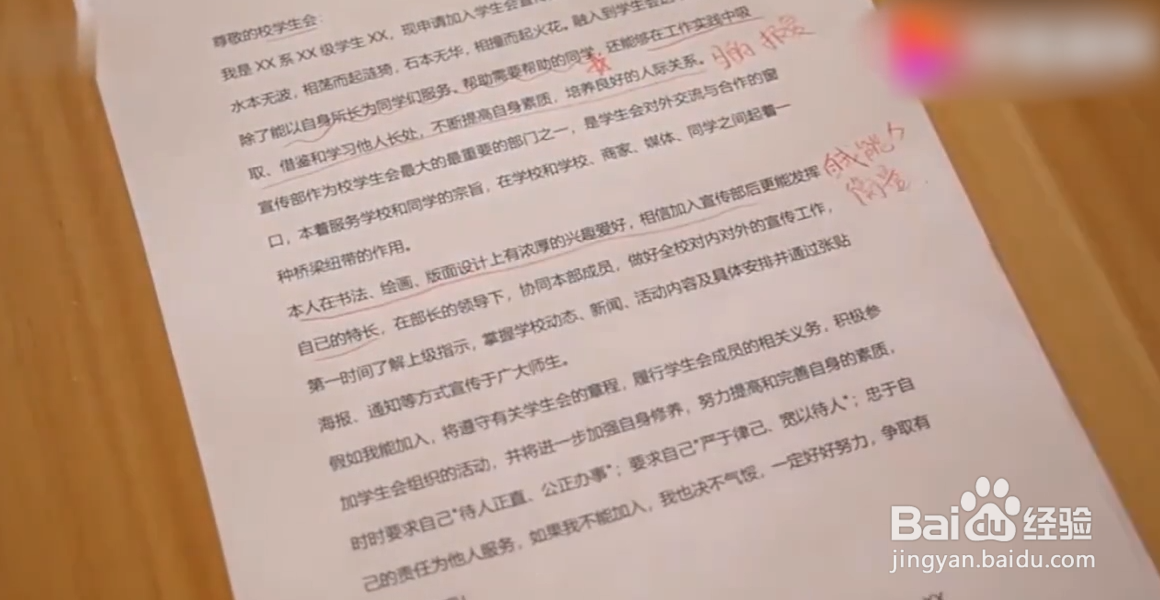 尊敬的校学生会：
我是 XX 系 XX 级学生 XX，现申请加入学生会宣
水本无波，相荡而起涟漪，石本无华，相撞而起火花。融入到学生会
除了能以自身所长为同学们服务、帮助需要帮助的同学，还能够在工作实践中吸
取、借鉴和学习他人长处，不断提高自身素质，培养良好的人际关系。
宣传部作为校学生会最大的最重要的部门之一，是学生会对外交流与合作的窗
口，本着服务学校和同学的宗旨，在学校和学校、商家、媒体、同学之间起着一
种桥梁纽带的作用。
本人在书法、绘画、版面设计上有浓厚的兴趣爱好，相信加入宣传部后更能发挥
自己的特长，在部长的领导下，协同本部成员，做好全校对内对外的宣传工作，
第一时间了解上级指示，掌握学校动态、新闻、活动内容及具体安排并通过张贴
海报、通知等方式宣传于广大师生。
假如我能加入，将遵守有关学生会的章程，履行学生会成员的相关义务，积极参
加学生会组织的活动，并将进一步加强自身修养，努力提高和完善自身的素质，
时时要求自己"待人正直、公正办事"；要求自己"严于律己、宽以待人"；忠于自
己的责任为他人服务，如果我不能加入，我也决不气馁，一定好好努力，争取有
XX
目的 抱负
自我能力
衡量
Baidu 经验
jingyan.baidu.com